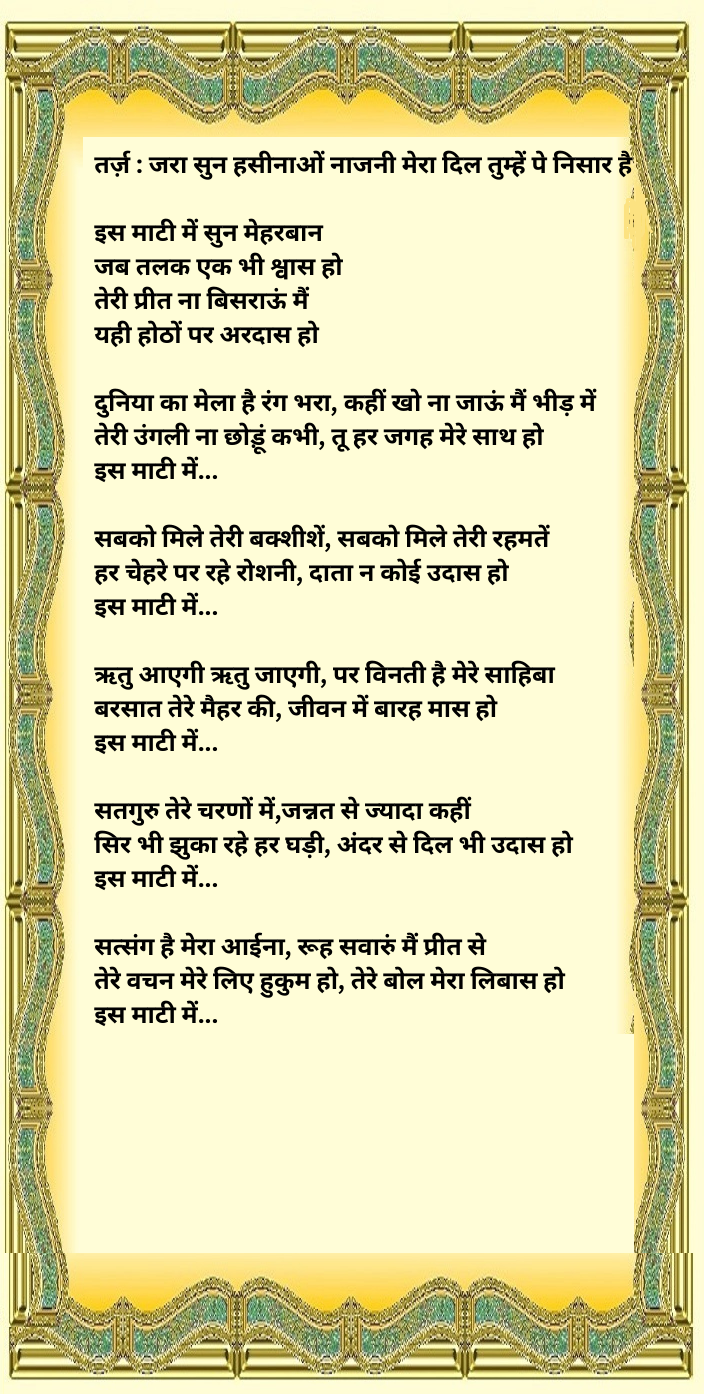 तर्ज़ : जरा सुन हसीनाओं नाजनी मेरा दिल तुम्हें पे निसार है
इस माटी में सुन मेहरबान
जब तलक एक भी श्वास हो
तेरी प्रीत ना बिसराऊं मैं
यही होठों पर अरदास हो
दुनिया का मेला है रंग भरा, कहीं खो ना जाऊं मैं भीड़ में
तेरी उंगली ना छोड़ूं कभी, तू हर जगह मेरे साथ हो
इस माटी में...
सबको मिले तेरी बक्शीशें, सबको मिले तेरी रहमतें
हर चेहरे पर रहे रोशनी, दाता न कोई उदास हो
इस माटी में...
ऋतु आएगी ऋतु जाएगी, पर विनती है मेरे साहिबा
बरसात तेरे मैहर की, जीवन में बारह मास हो
इस माटी में...
सतगुरु तेरे चरणों में,जन्नत से ज्यादा कहीं
सिर भी झुका रहे हर घड़ी, अंदर से दिल भी उदास हो
इस माटी में...
सत्संग है मेरा आईना, रूह सवारुं मैं प्रीत से
तेरे वचन मेरे लिए हुकुम हो, तेरे बोल मेरा लिबास हो
इस माटी में...